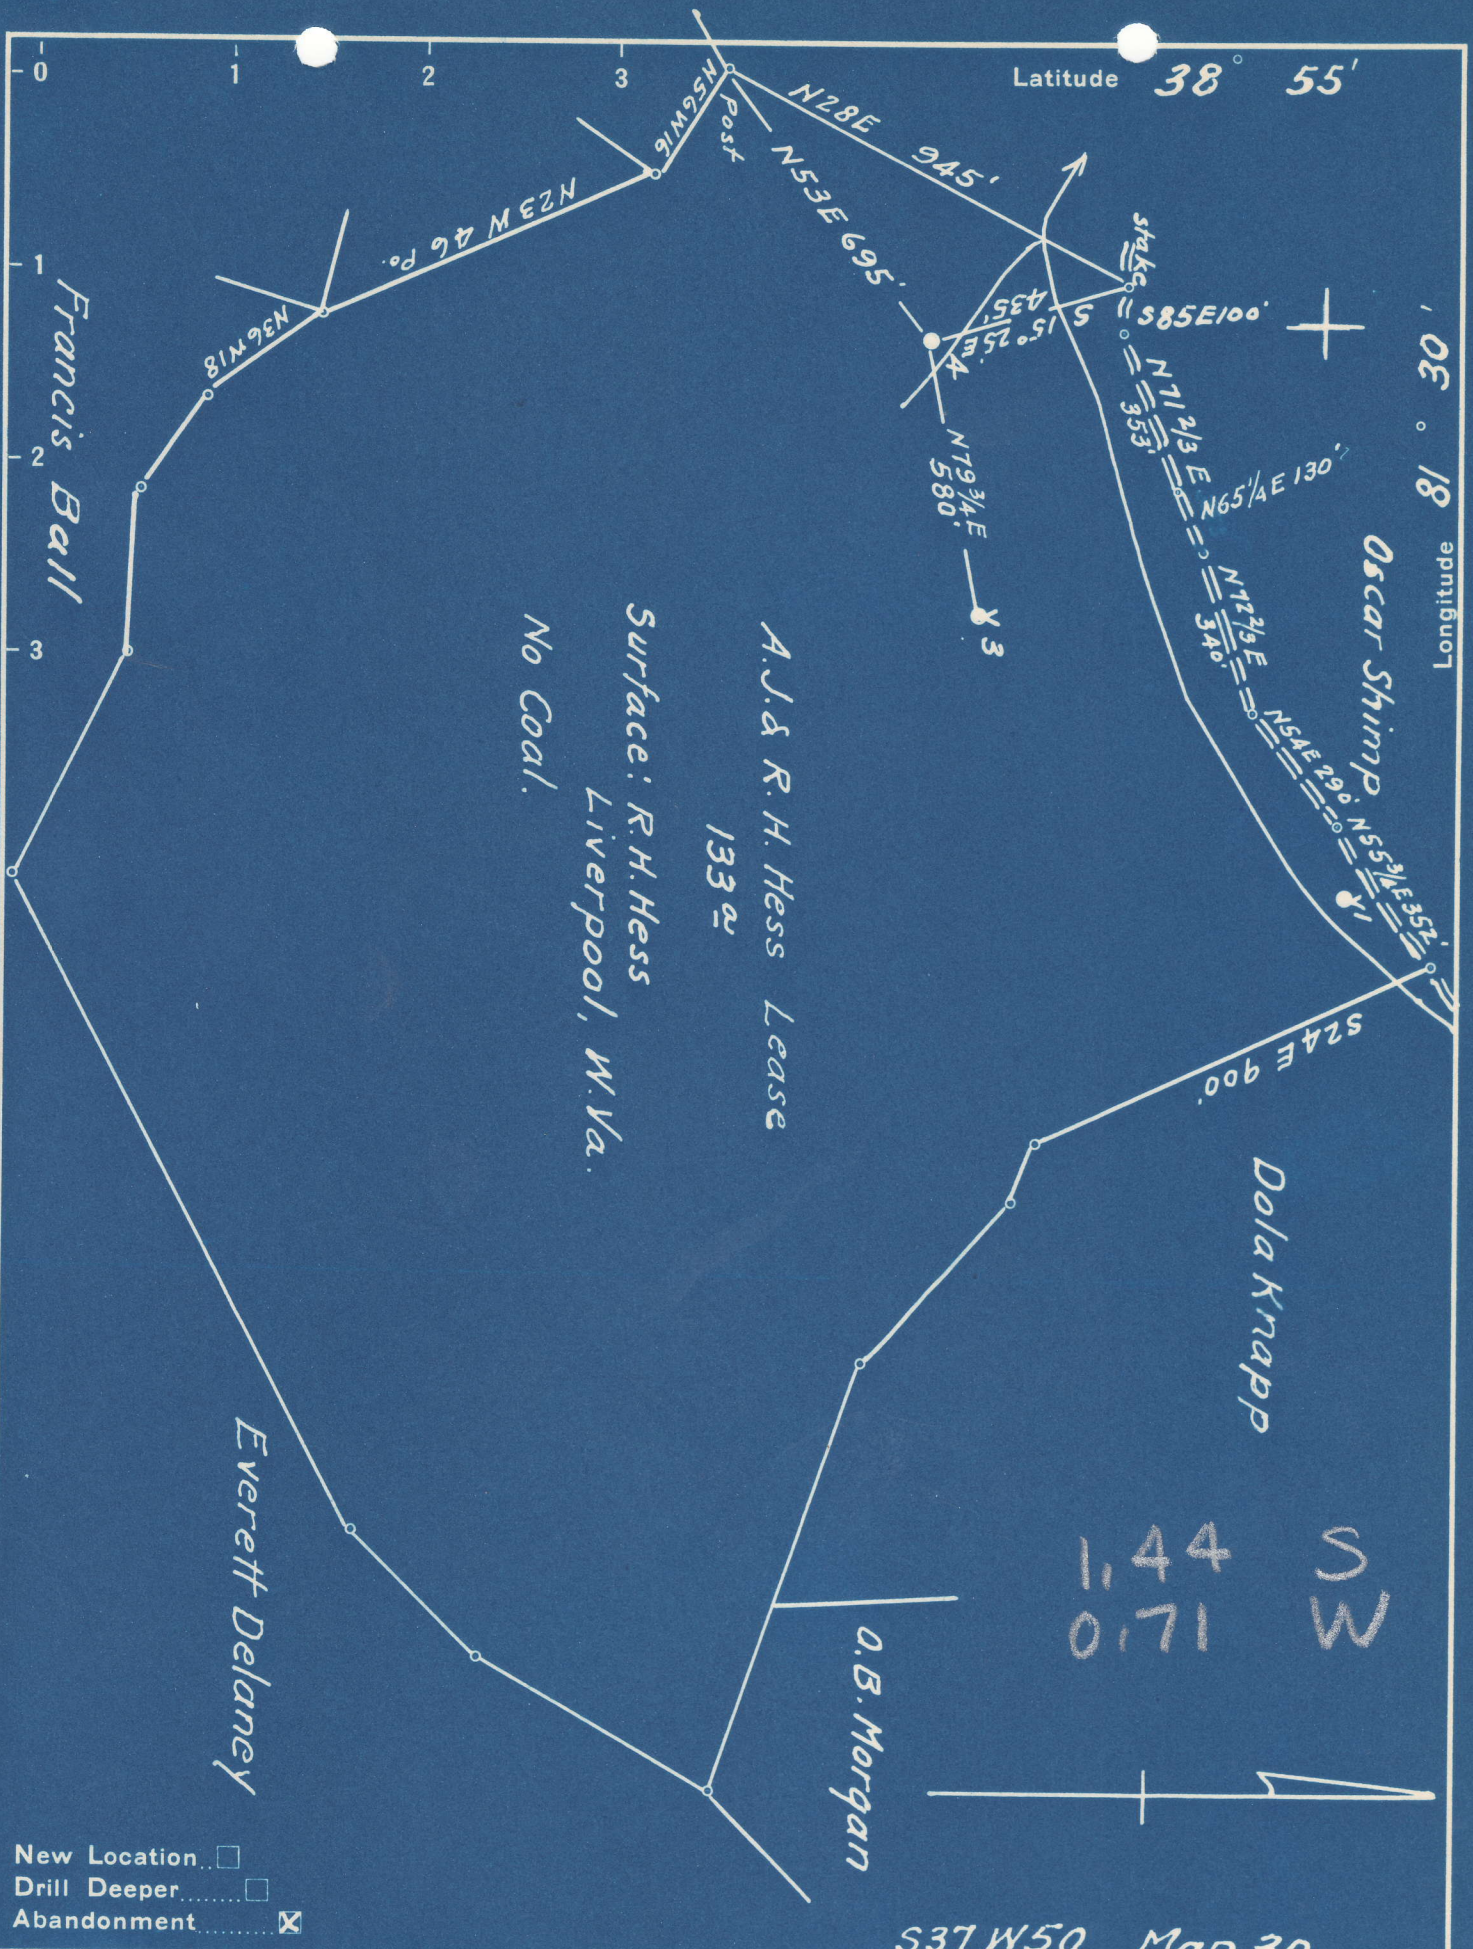 0
1
2
3
Latitude 38° 55'
1
2
3
Longitude
81° 30'
N28E 945'
N56W16
Post
N53E 695'
N23W 46 Po.
N36W18
stake
S85E100'
S 15° 25'E
435'
4
N79 3/4 E
580'
3
N71 2/3 E
353'
N65 1/4 E 130'
N72 2/3 E
340'
N54E 290'
N55 3/4 E 352'
1
S24E 900'
Oscar Shimp
Francis Ball
Dola Knapp
A.J. & R.H. Hess Lease
133 a
Surface: R.H. Hess
Liverpool, W.Va.
No Coal.
Everett Delaney
O.B. Morgan
1.44 S
0.71 W
New Location
Drill Deeper
Abandonment X
S37 W50